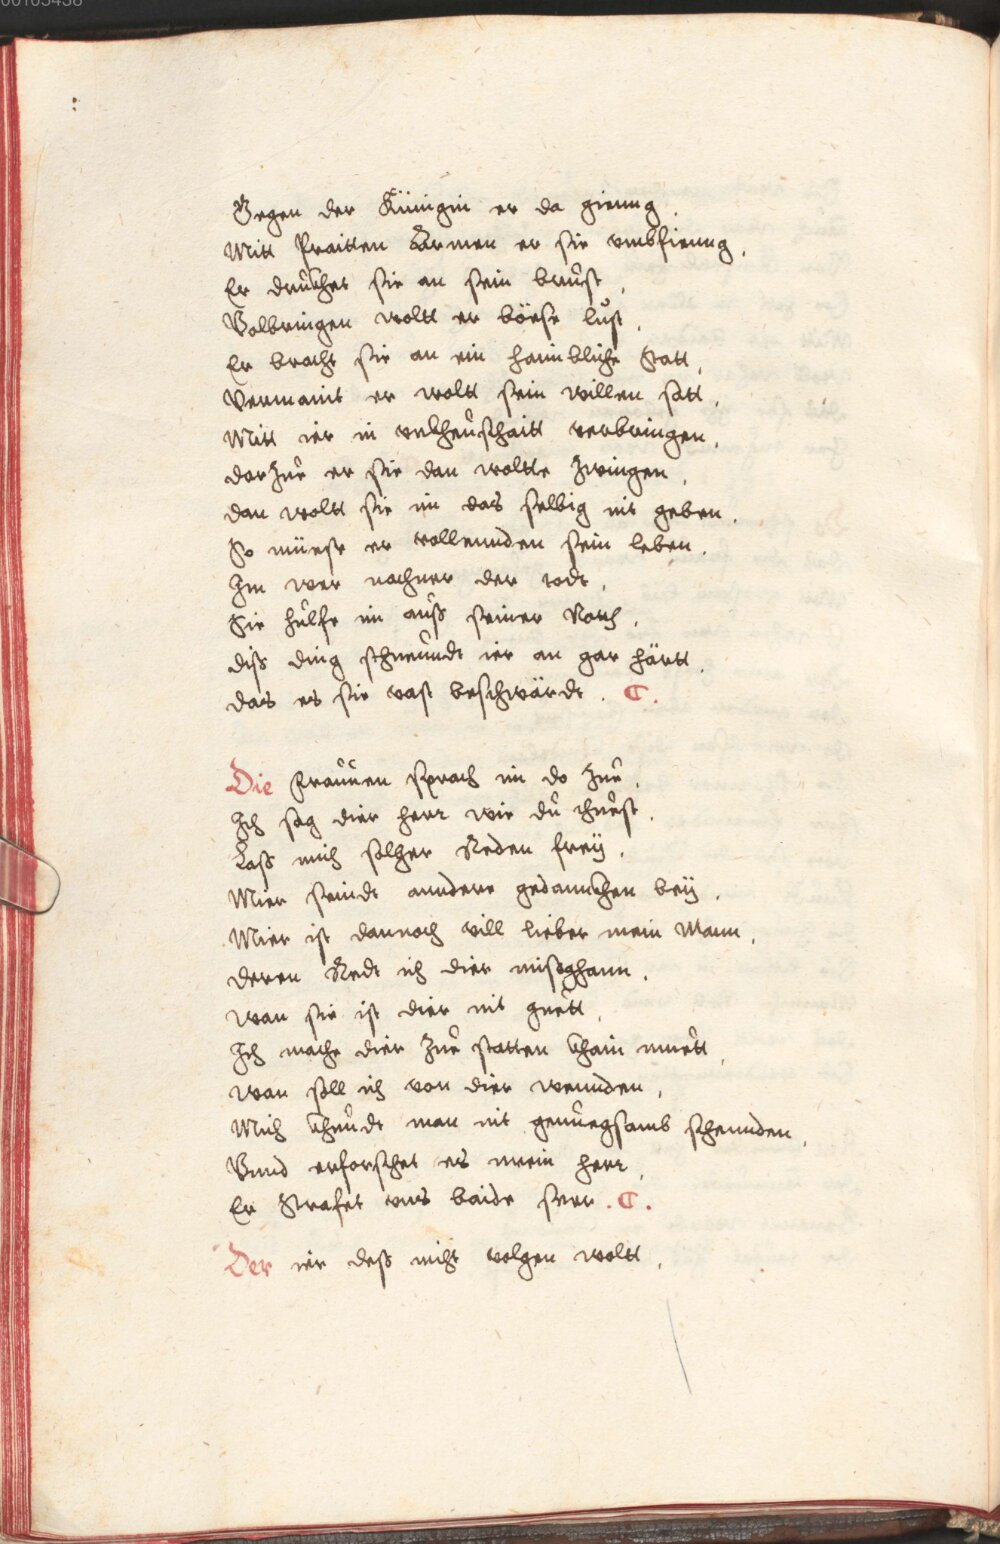 00105438
Gegen der Künigin er da gienng.
Mitt Praitten Armen er sie vmbfienng.
Er druckhet sie an sein brust,
Volbringen woltt er böese lust.
Er bracht sie an ein haimbliche Statt,
Vermaint er woltt sein willen satt.
Mitt ier in vnkheuschaitt verbringen.
dar Zue er sie dan woltte Zwingen.
dan woltt sie im das selbig nit geben.
So müese er vollennden sein leben.
Im wer nachner der todt,
Sie hulfe im auß seiner Noth.
diß ding schneundt ier an gar härtt.
das es sie vast beschwärdt. C.
Die Frauuen sprach im do Zue.
Ich sag dier herr wie du thuest.
Laß mich solher Reden frey.
Mier seindt anndere gedannckhen bey.
Mier ist dannoch vill lieber mein Mann.
deren Redt ich dier mißghann.
wan sie ist dier nit guett,
Ich mache dier Zue statten khain muett
wan soll ich von dier wennden,
Mich khundt man nit genuegsamb schennden.
Vnnd erforschet es mein herr,
Er Strafet vns baide seer. C.
Der ier deß nicht volgen woltt,